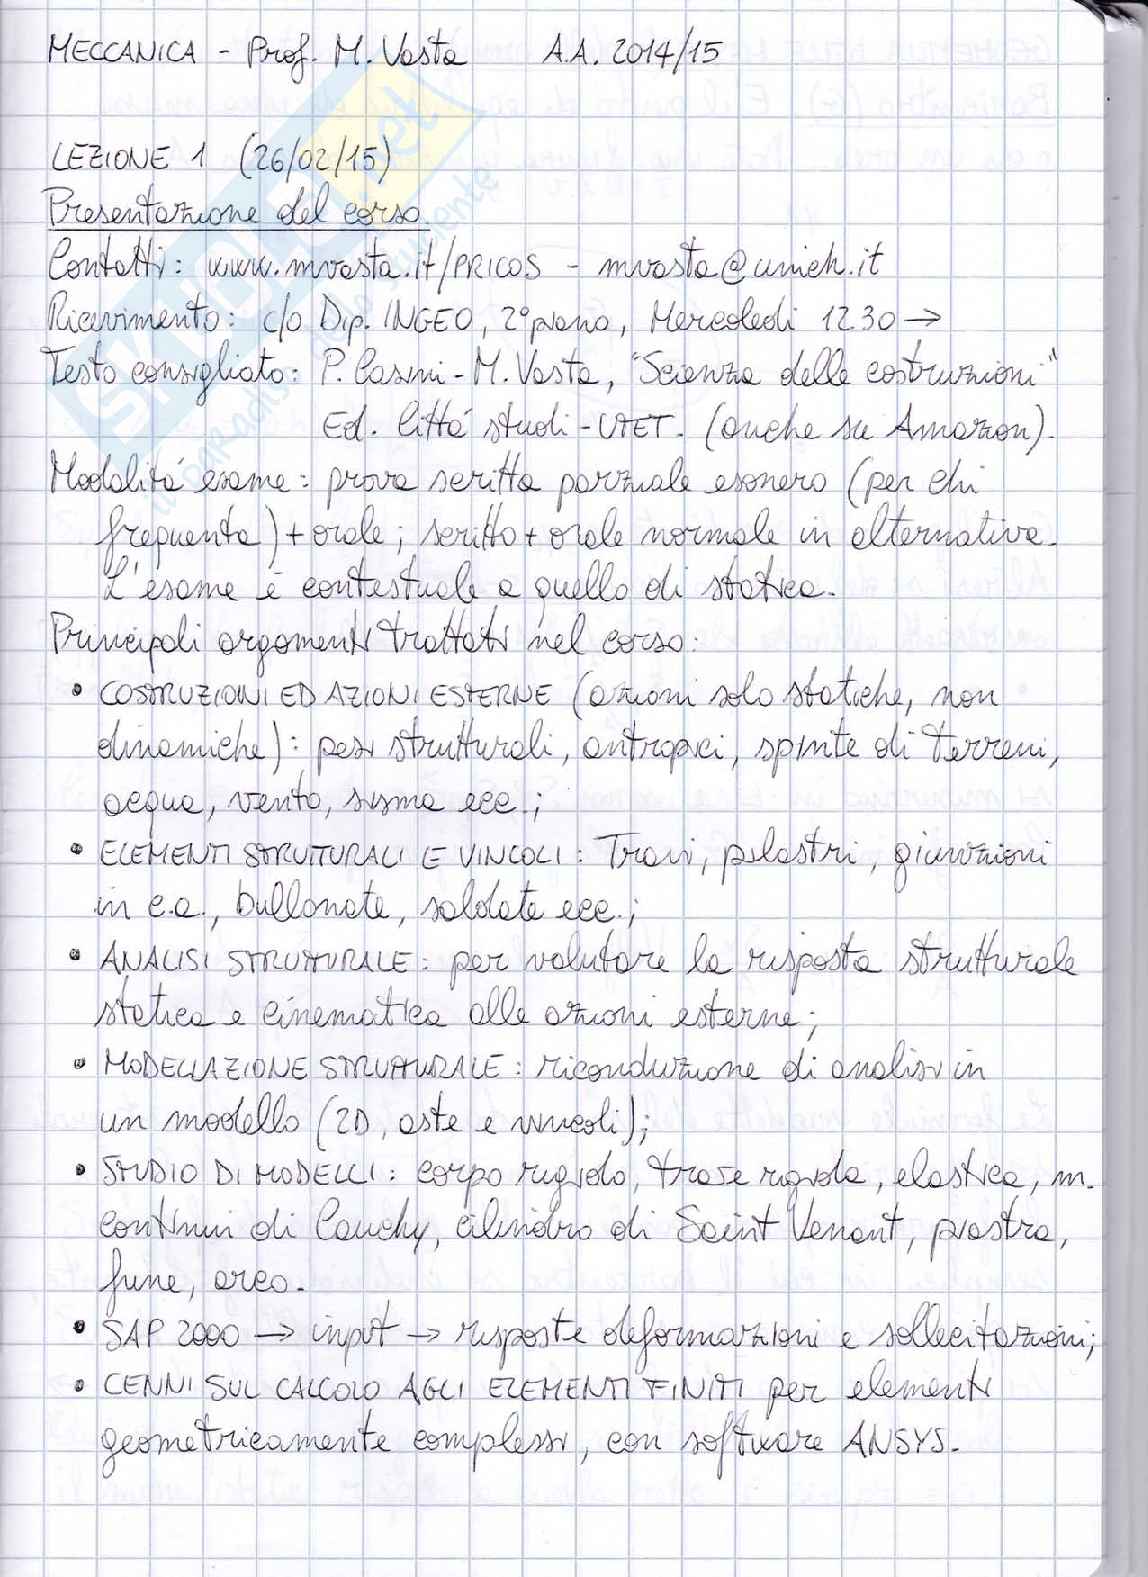 MECCANICA - Prof. M. Vasta A.A. 2014/15
LEZIONE 1 (26/02/15)
Presentazione del corso
Contatti: www.mvasta.it/PRICOS - mvasta@unich.it
Ricevimento: c/o Dip. INGEO, 2° piano, Mercoledì 12.30 →
Testo consigliato: P. Casini - M. Vasta, "Scienza delle costruzioni"
Ed. Cittá studi - UTET. (anche su Amazon).
Modalitá esame: prova scritta parziale esonero (per chi
frequenta) + orale; scritto + orale normale in alternativa.
L'esame è contestuale a quello di statica.
Principali argomenti trattati nel corso:
• COSTRUZIONI ED AZIONI ESTERNE (azioni solo statiche, non
dinamiche): pesi strutturali, antropici, spinte di terreni,
acqua, vento, sisma ecc.;
• ELEMENTI STRUTTURALI E VINCOLI: Travi, pilastri, giunzioni
in c.a., bullonate, saldate ecc.;
• ANALISI STRUTTURALE: per valutare la risposta strutturale
statica e cinematica alle azioni esterne;
• MODELLAZIONE STRUTTURALE: riconduzione di analisi in
un modello (2D, aste e vincoli);
• STUDIO DI MODELLI: corpo rigido, trave rigida, elastica, m.
continui di Cauchy, cilindro di Saint Venant, piastra,
fune, arco.
• SAP 2000 → input → risposte deformazioni e sollecitazioni;
• CENNI SUL CALCOLO AGLI ELEMENTI FINITI per elementi
geometricamente complessi, con software ANSYS.